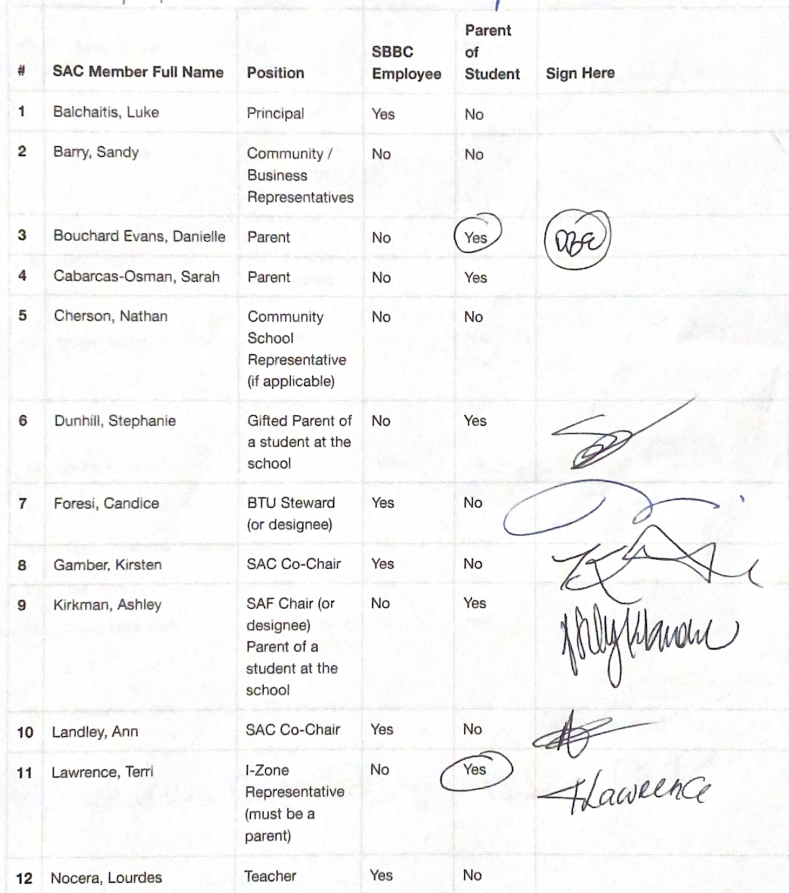 Parent
SBBC of
# SAC Member Full Name Position Employee Student Sign Here
1 Balchaitis, Luke Principal Yes No
2 Barry, Sandy Community / No No
Business
Representatives
3 Bouchard Evans, Danielle Parent No Yes DBE
4 Cabarcas-Osman, Sarah Parent No Yes
5 Cherson, Nathan Community No No
School
Representative
(if applicable)
6 Dunhill, Stephanie Gifted Parent of No Yes
a student at the
school
7 Foresi, Candice BTU Steward Yes No
(or designee)
8 Gamber, Kirsten SAC Co-Chair Yes No
9 Kirkman, Ashley SAF Chair (or No Yes
designee)
Parent of a
student at the
school
10 Landley, Ann SAC Co-Chair Yes No
11 Lawrence, Terri I-Zone No Yes
Representative TLawrence
(must be a
parent)
12 Nocera, Lourdes Teacher Yes No